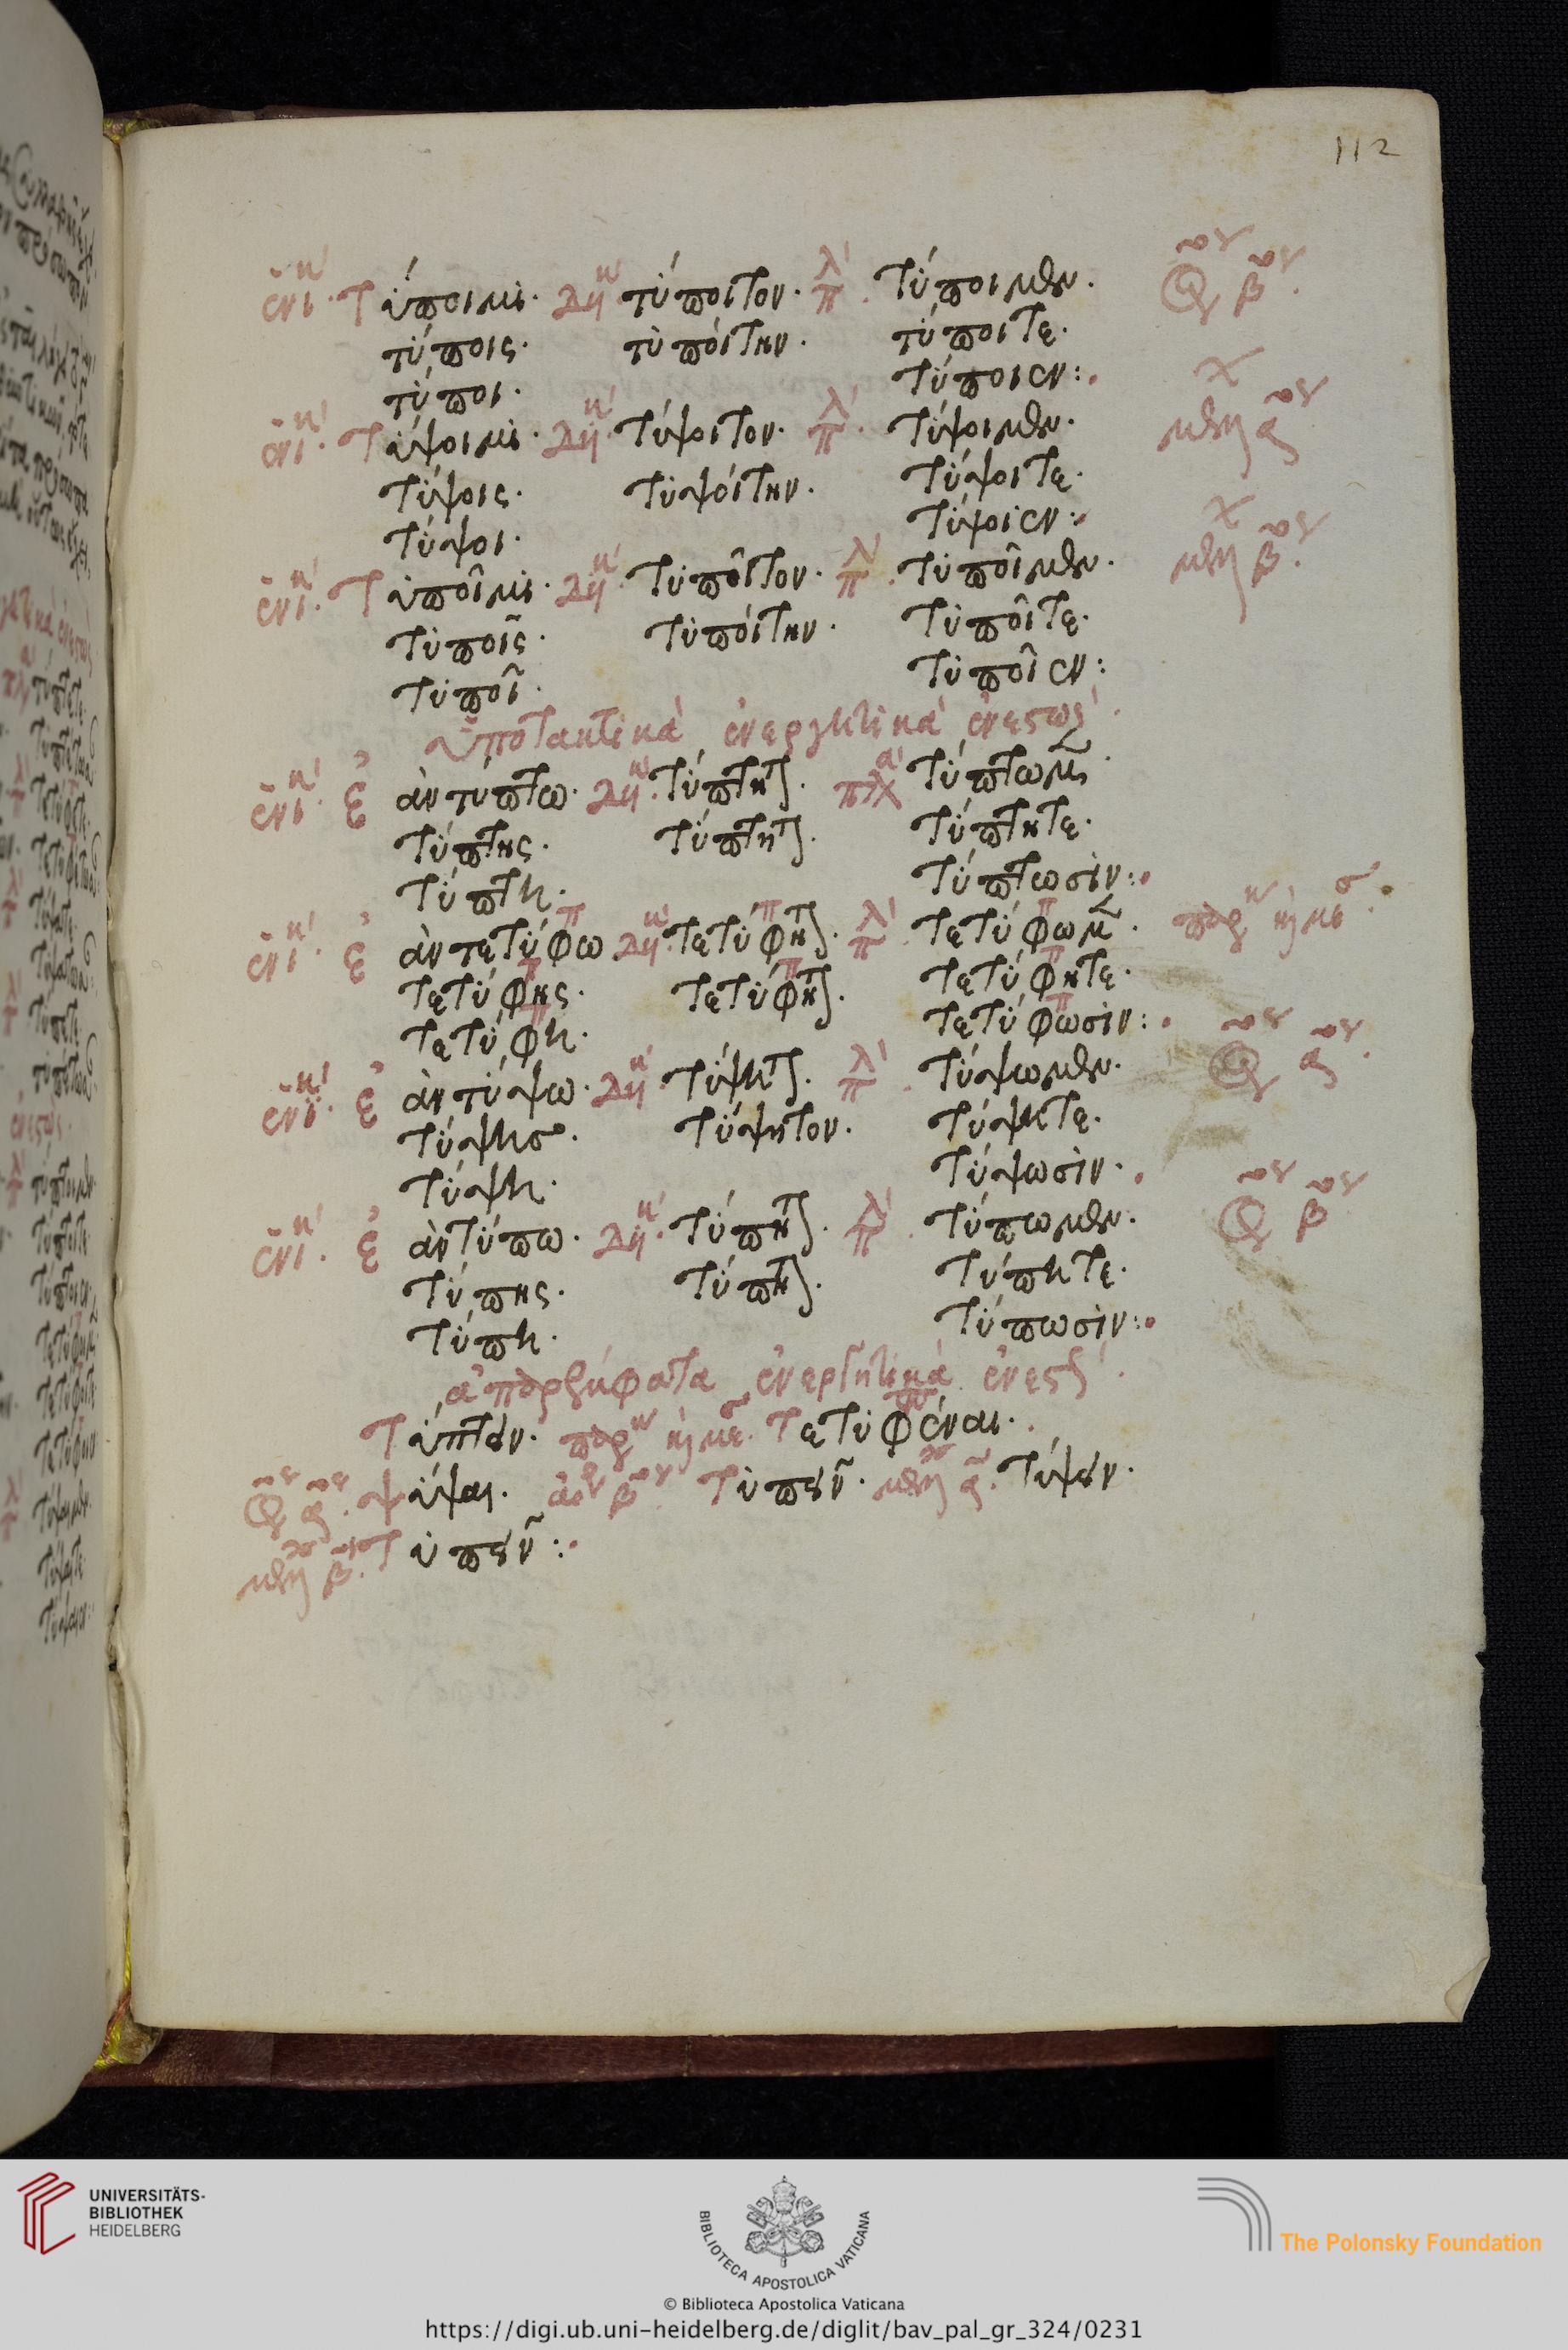 112
ἑνικ Τύποιμι. Δυικ τύποιτον. πλ. Τύποιμεν. ἀορ β.
τύποις. τυποίτην. τύποιτε.
τύποι. Τύποιεν:
ἑνικ. Τύψοιμι. Δυικ Τύψοιτον. πλ. Τύψοιμεν. μελλ α.
Τύψοις. Τυψοίτην. Τύψοιτε.
Τύψοι. Τύψοιεν:
ἑνικ. Τυποῖμι. Δυικ Τυποῖτον. πλ. Τυποῖμεν. μελλ β.
Τυποῖς. Τυποίτην. Τυποῖτε.
Τυποῖ. Τυποῖεν:
Ὑποτακτικὰ ἐνεργητικὰ ἐνεστὼς.
ἑνικ. ἐὰν τύπτω. Δυικ. Τύπτητον. πλ Τύπτωμεν.
Τύπτης. Τύπτητον. Τύπτητε.
Τύπτη. Τύπτωσιν:
ἑνικ. ἐὰν τετύφω Δυικ. Τετύφητον. πλ. Τετύφωμεν. παρκ
Τετύφης. Τετύφητον. Τετύφητε.
Τετύφη. Τετύφωσιν:
ἑνικ. ἐὰν τύψω. Δυικ. Τύψητον. πλ. Τύψωμεν. ἀορ α.
Τύψης. Τύψητον. Τύψητε.
Τύψη. Τύψωσιν.
ἑνικ. ἐὰν Τύπω. Δυικ. Τύπητον. πλ. Τύπωμεν. ἀορ β
Τύπης. Τύπητον. Τύπητε.
Τύπη. Τύπωσιν:
ἀπαρέμφατα ἐνεργητικά ἐνεστ.
Τύπτειν. παρκ Τετυφέναι.
ἀορ α. τύψαι. ἀορ β. Τυπεῖν. μελλ α. Τύψειν.
μελλ β. Τυπεῖν:
UNIVERSITÄTS-
BIBLIOTHEK
HEIDELBERG
BIBLIOTECA APOSTOLICA VATICANA
The Polonsky Foundation
© Biblioteca Apostolica Vaticana
https://digi.ub.uni-heidelberg.de/diglit/bav_pal_gr_324/0231